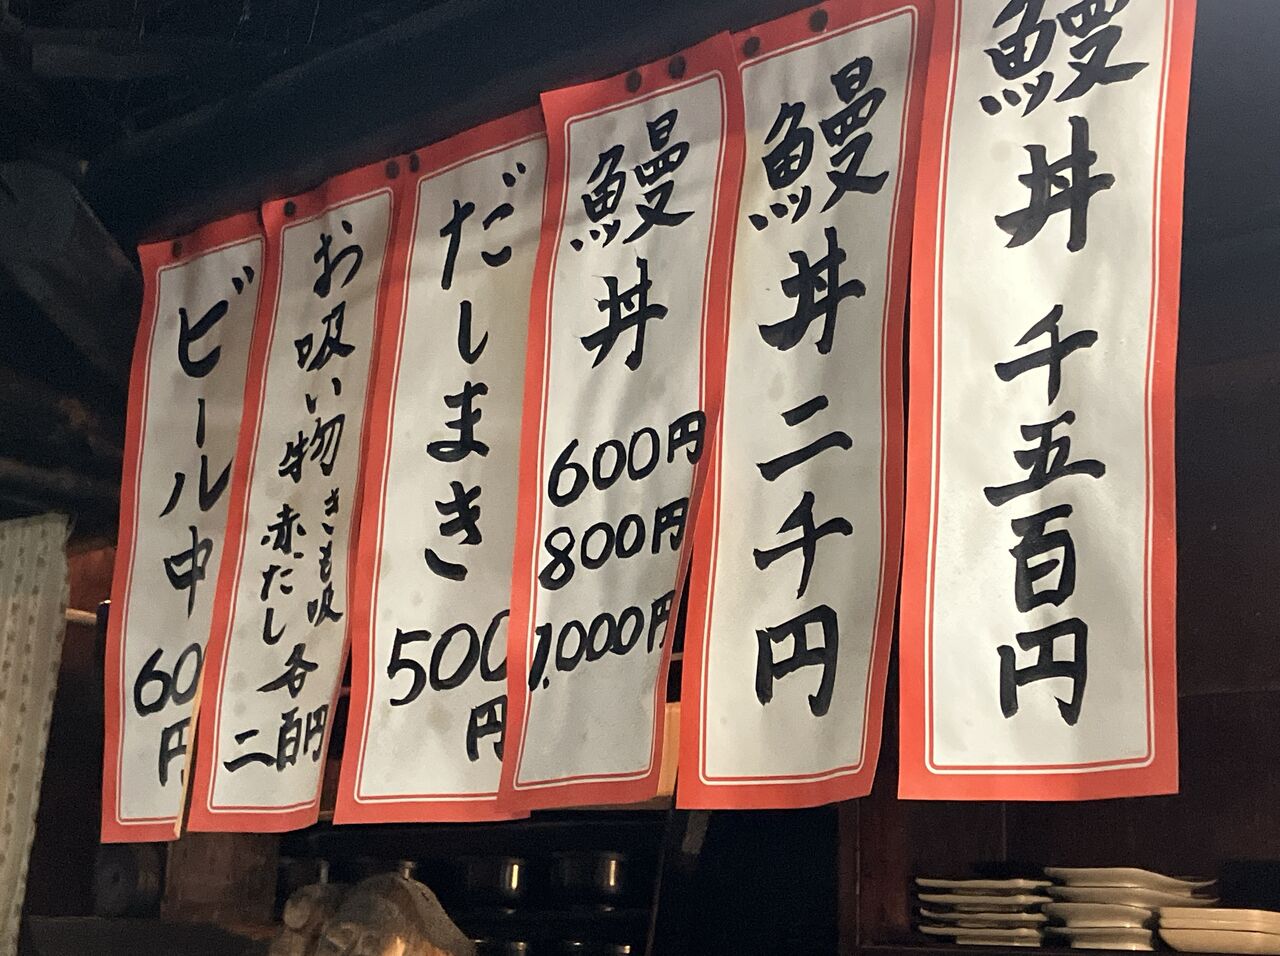 鰻丼 千五百円
鰻丼 二千円
鰻丼
600円
800円
1,000円
だしまき
500
円
お吸い物 きも吸
赤だし 各
二百円
ビール中
60
円